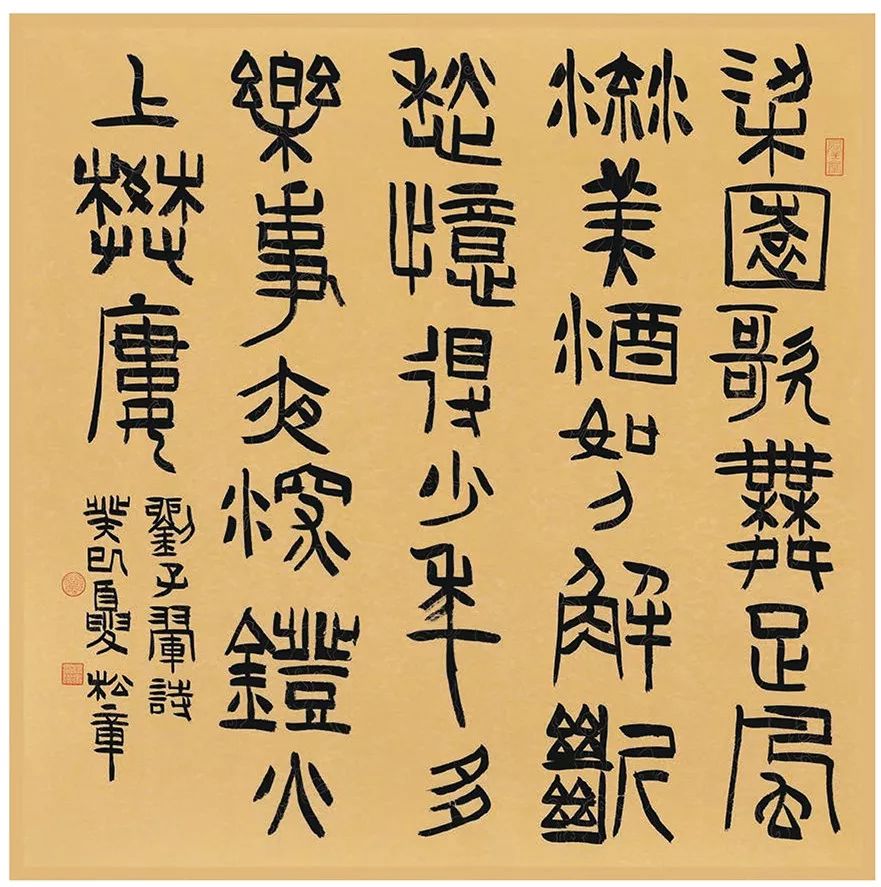 梁園歌舞足風
流美酒如刀解斷
愁憶得少年多
樂事夜深鐙火
上樊廔
劉子翬詩
癸巳夏松章